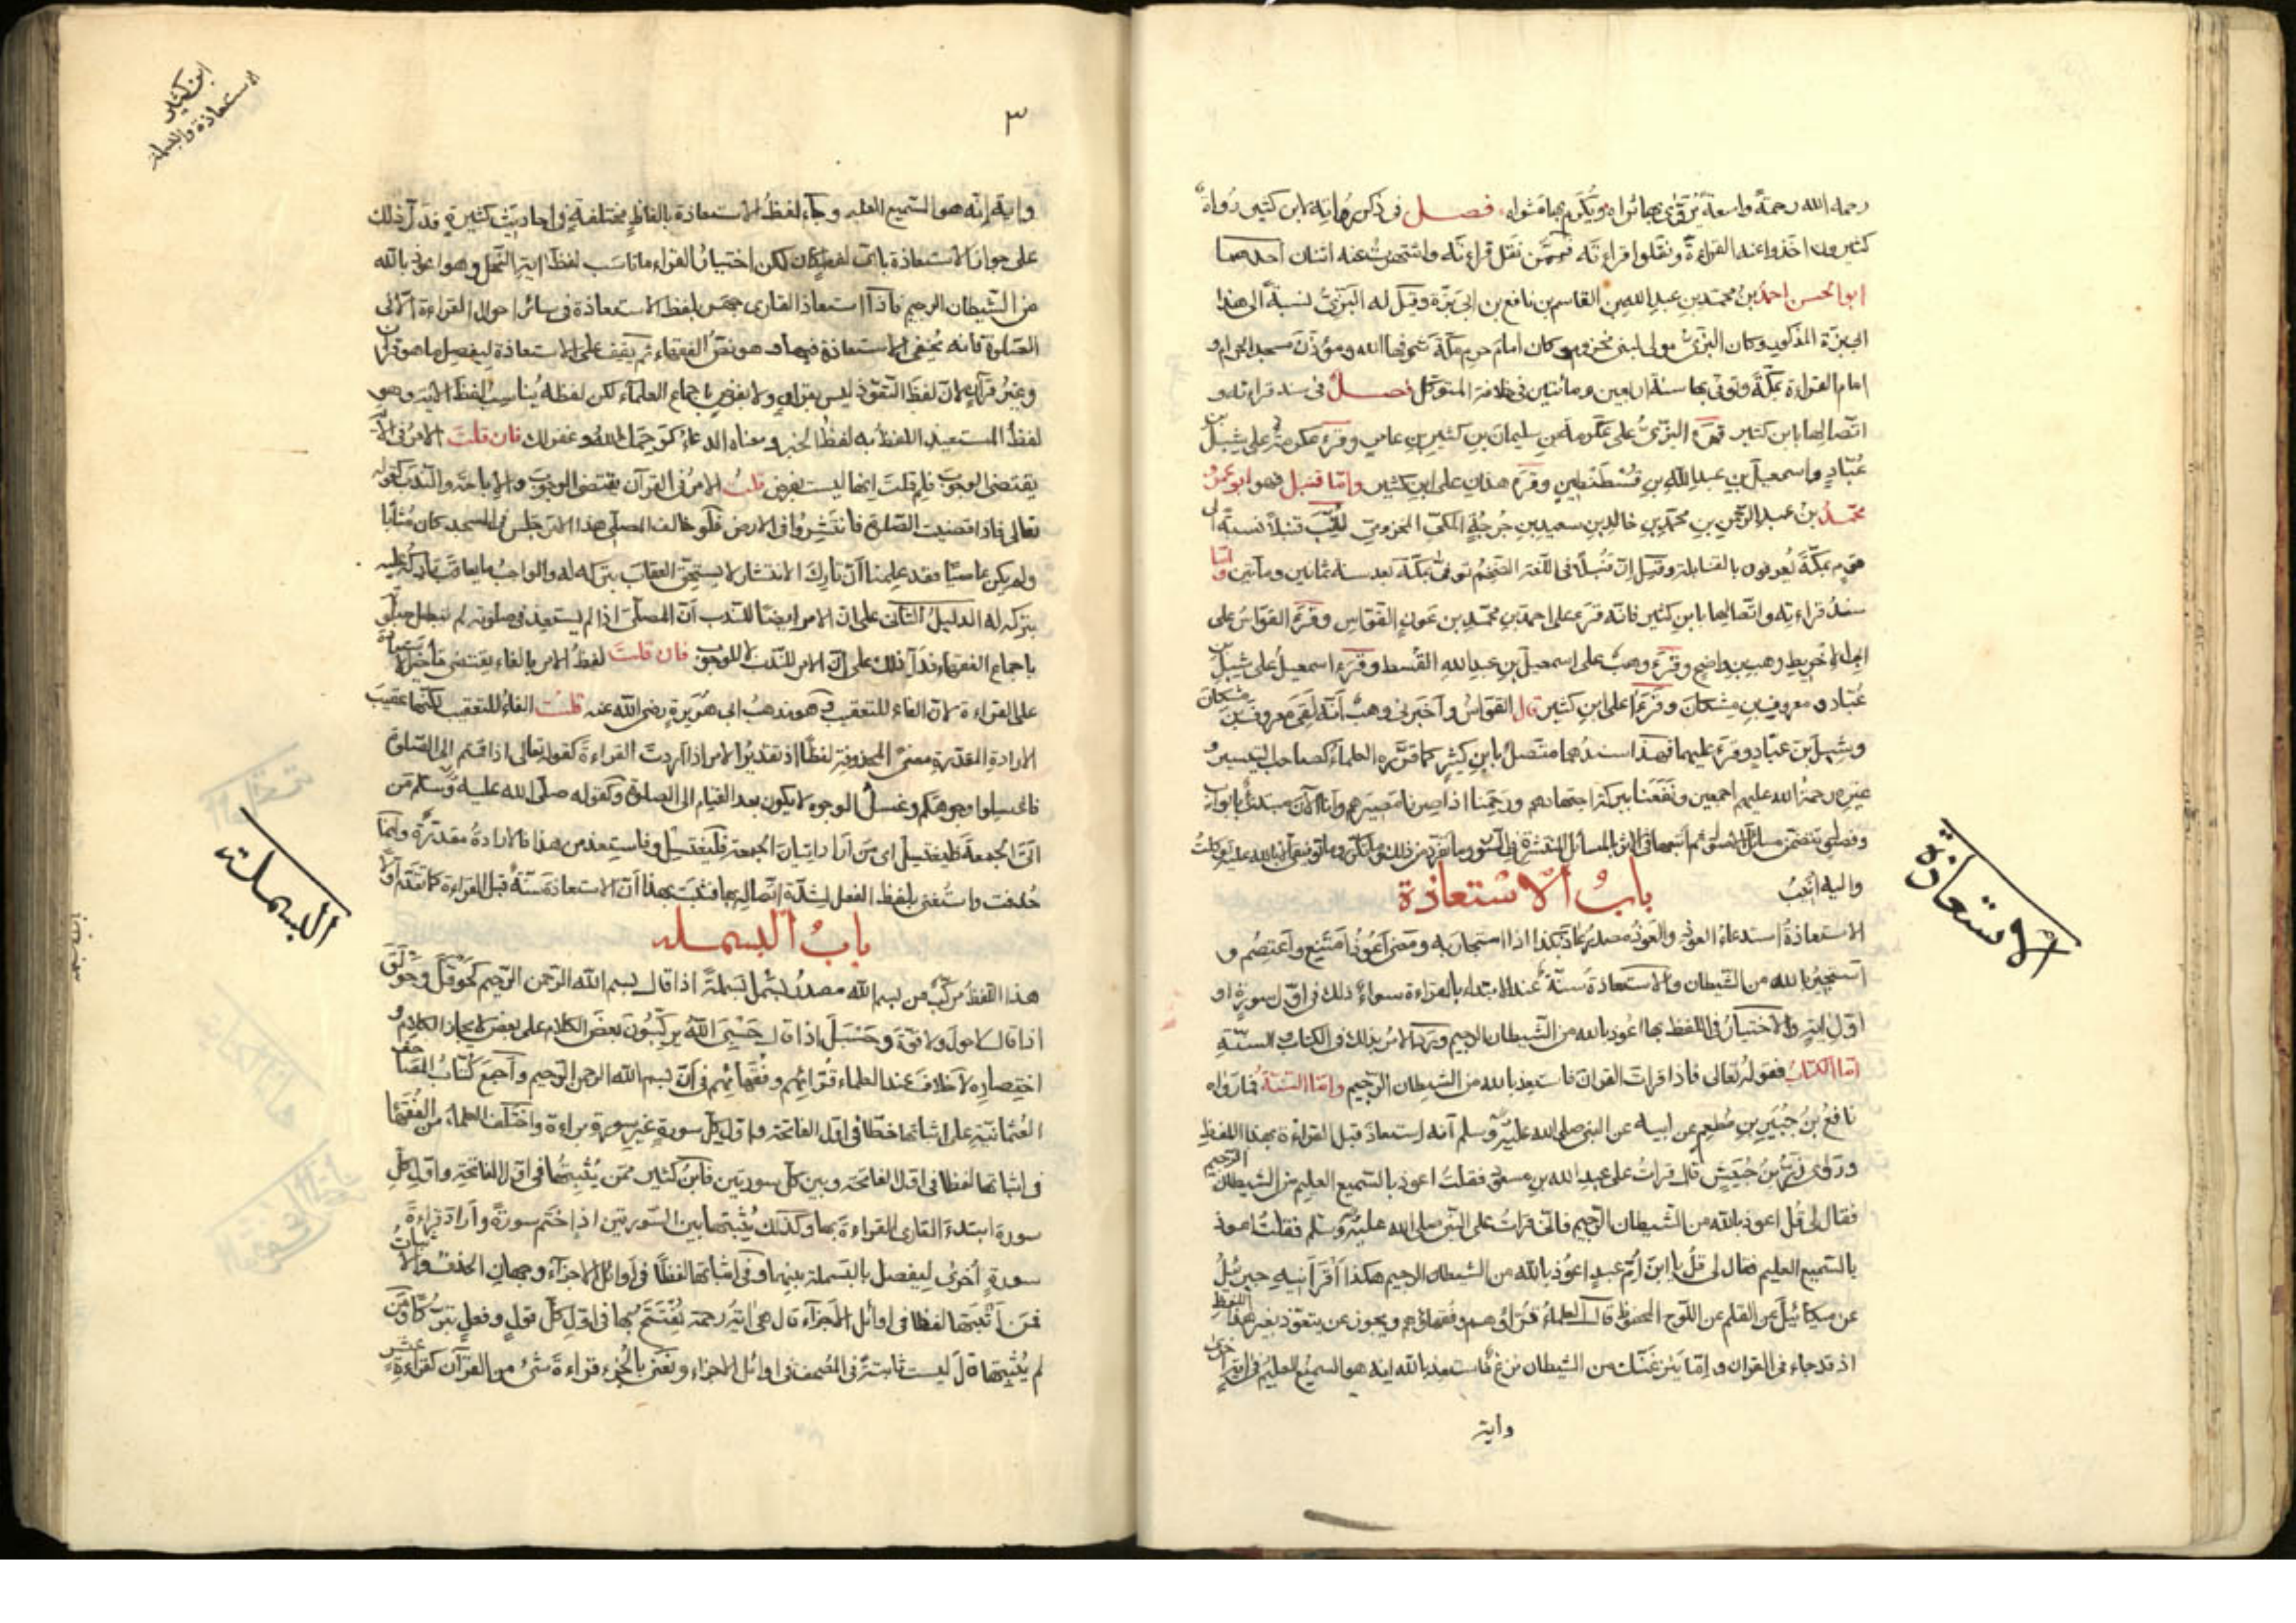 رحمه الله رحمة واسعة يُرَوّى بها ثراه ويُكرم بها مثواه فصل في ذكر رواته لابن كثير رُواة
كثيرون اخذوا عنه القراءة ونقلوا قراءته فممّن نقل قراءته واشتهرت عنه اثنان احدهما
ابو الحسن احمد بن محمّد بن عبد الله بن القاسم بن نافع بن ابي بزّة وقيل له البزّيّ نسبةً الى هذا
ابي بزّة المذكور وكان البزّيّ مولى لبني مخزوم وكان امام حرم مكّة شرفها الله ومؤذّن مسجد الحرام و
امام القراءة بمكّة وتوفّي بها سنة اربعين ومائتين في خلافة المتوكّل فصل في سند قراءته و
اتّصالها بابن كثير قرء البزّيّ على عكرمة بن سليمان بن كثير بن عامر وقرء عكرمة على شبل بن
عُبّاد واسمعيل بن عبد الله بن قسطنطين وقرء هذان على ابن كثير وامّا قنبل فهو ابو عمر
محمّد بن عبد الرحمن بن محمّد بن خالد بن سعيد بن جرجة المكّي المخزومي لُقّب قنبلاً نسبة الى
قوم بمكّة يُعرفون بالقنابلة وقيل انّ قنبلاً في اللّغة الضخم توفّي بمكّة بعد سنة ثمانين ومأتين وامّا
سند قراءته واتّصالها بابن كثير فانّه قرء على احمد بن محمّد بن عون القوّاس وقرء القوّاس على
ابي الاخريط وهب بن واضح وقرء وهب على اسمعيل بن عبد الله القُسط وقرء اسمعيل على شبل بن
عُبّاد ومعروف بن مشكان وقرءا على ابن كثير قال القوّاس واخبرني وهب انّه لقي معروف بن مشكان
وشبل بن عبّاد وقرء عليهما فهذا سندهما متّصل بابن كثير كما قرّره العلماء كصاحب التيسير و
غيره رحمة الله عليهم اجمعين ونفعنا ببركة اجتهادهم ورحمنا اذا صِرنا مصيرهم وانا الآن مبتدئ بابواب
واليه انيب
باب الاستعاذة
الاستعاذة استدعاء العوذ والعوذ مصدر عاذ بكذا اذا استجار به ومعنى اعوذ امتنع واعتصم و
استجير بالله من الشيطان والاستعاذة سنّة عند الابتداء بالقراءة سواءً ذلك في اوّل سورة او
اوّل اية والاختيار في اللفظ بها اعوذ بالله من الشيطان الرجيم وَرَد الامر بذلك في الكتاب والسنّة
امّا الكتاب فقوله تعالى فاذا قرات القران فاستعذ بالله من الشيطان الرجيم وامّا السنّة فما رواه
نافع بن جُبير بن مطعم عن ابيه عن النبي صلى الله عليه وسلم انه استعاذ قبل القراءة بهذا اللفظ
وروى زرّ بن حُبيش قال قرات على عبد الله بن مسعود فقلت اعوذ بالسميع العليم من الشيطان الرجيم
فقال لي قل اعوذ بالله من الشيطان الرجيم فاني قرات على النبي صلى الله عليه وسلم فقلت اعوذ
بالسميع العليم فقال لي قل يا ابن امّ عبد اعوذ بالله من الشيطان الرجيم هكذا اقرأنيه جبرئيل
عن ميكائيل عن القلم عن اللّوح المحفوظ قال العلماء قرّاؤهم وفقهاؤهم ويجوز عن يتعوّذ بغير هذا اللفظ
اذ قد جاء في القران وامّا ينزغنّك من الشيطان نزغ فاستعذ بالله انه هو السميع العليم في اية اخرى
واية
الاستعاذة
ابن كثير
الاستعاذة والبسملة
٣
واية إنّه هو السميع العليم وجاء لفظ الاستعاذة بالفاظ مختلفة في احاديث كثيرة فدلّ ذلك
على جواز الاستعاذة بايّ لفظ كان لكن اختيار القراء ما ناسب لفظ اية النّحل وهو اعوذ بالله
من الشيطان الرجيم فاذا استعاذ القارى جهر بلفظ الاستعاذة في سائر احوال القراءة الّا في
الصّلوة فانه يخفي الاستعاذة فيها وهو نصّ الفقهاء ثم يقف على الاستعاذة ليفصل ما هو قران
وغير قران لانّ لفظ التعوّذ ليس بقران ولا بفرض باجماع العلماء لكن لفظه يناسب لفظ الاية وهو
لفظ المستعيذ اللفظ به لفظ الخبر ومعناه الدعاء كرحمك الله وغفر لك فان قلت الامر في الاية
يقتضي الوجوب فلم قلت انها ليست بفرض قلت الامر في القرآن يقتضي الوجوب والاباحة والنّدب كقوله
تعالى فاذا قضيت الصلوة فانتشروا في الارض فلو خالف المصلّي هذا الامر وجلس في المسجد كان مُثابا
ولم يكن عاصيا فقد علمنا انّ تارك الانتشار لا يستحقّ العقاب بتركه له والواجب ما يعاقب تاركه عليه
بتركه له الدليل الثاني على انّ الامر ايضا للنّدب انّ المصلّي اذا لم يستعذ في صلوته لم تبطل صلوته
باجماع الفقهاء فدلّ ذلك على انّ الامر للنّدب لا للوجوب فان قلت لفظ الامر بالفاء يقتضي تأخير الاستعاذة
على القراءة لانّ الفاء للتعقيب وهو مذهب ابي هريرة رضي الله عنه قلت الفاء للتعقيب لكنّها عقيب
الارادة المقدّرة معنىً المحذوفة لفظا اذ تقدير الامر اذا اردت القراءة كقوله تعالى اذا قمتم الى الصّلوة
فاغسلوا وجوهكم وغسل الوجوه لا يكون بعد القيام الى الصلوة وكقوله صلّى الله عليه وسلّم من
اتى الجمعة فليغتسل اي من اراد اتيان الجمعة فليغتسل وفاستعذ من هذا فالارادة مقدّرة وانّما
حُذفت واستُغني بلفظ الفعل لشدّة اتّصاله بها فثبت بهذا انّ الاستعاذة سنّة قبل القراءة كما تقدّم اوّلا
باب البسملة
هذا اللفظ مركّب من بسم الله مصدر بَسمل بسملةً اذا قال بسم الله الرّحمن الرّحيم كحوقل وحولق
اذا قال لا حول ولا قوّة وحسبل اذا قال حسبي الله يركّبون بعض الكلام على بعض لايجاز الكلام و
اختصاره لا خلاف عند العلماء قرّائهم وفقهائهم في انّ بسم الله الرحمن الرّحيم وأجمع كتّاب المصاحف
العثمانيّة على اثباتها خطّا في اوّل الفاتحة واوّل كلّ سورة غير سورة براءة واختلف العلماء من الفقهاء
في اثباتها لفظا في اوّل الفاتحة وبين كلّ سورتين فابن كثير ممّن يثبتها في اوّل الفاتحة واوّل كلّ
سورة ابتدء القارى القراءة بها وكذلك يثبتها بين السّورتين اذا ختم سورةً واراد قراءة
سورة أخرى ليفصل بالبسملة بينهما وفي اثباتها لفظا في اوائل الاجزاء وجهان الحذف والاثبات
فمن اثبتها لفظا في اوائل الاجزاء قال هي اية رحمة يُفتتح بها في اوّل كلّ قول وفعل تبرّكا ومن
لم يثبتها قال ليست ثابتة في المصحف في اوائل الاجزاء ونعني بالجزء قراءة شئ من القرآن كقراءة عشر
البسملة